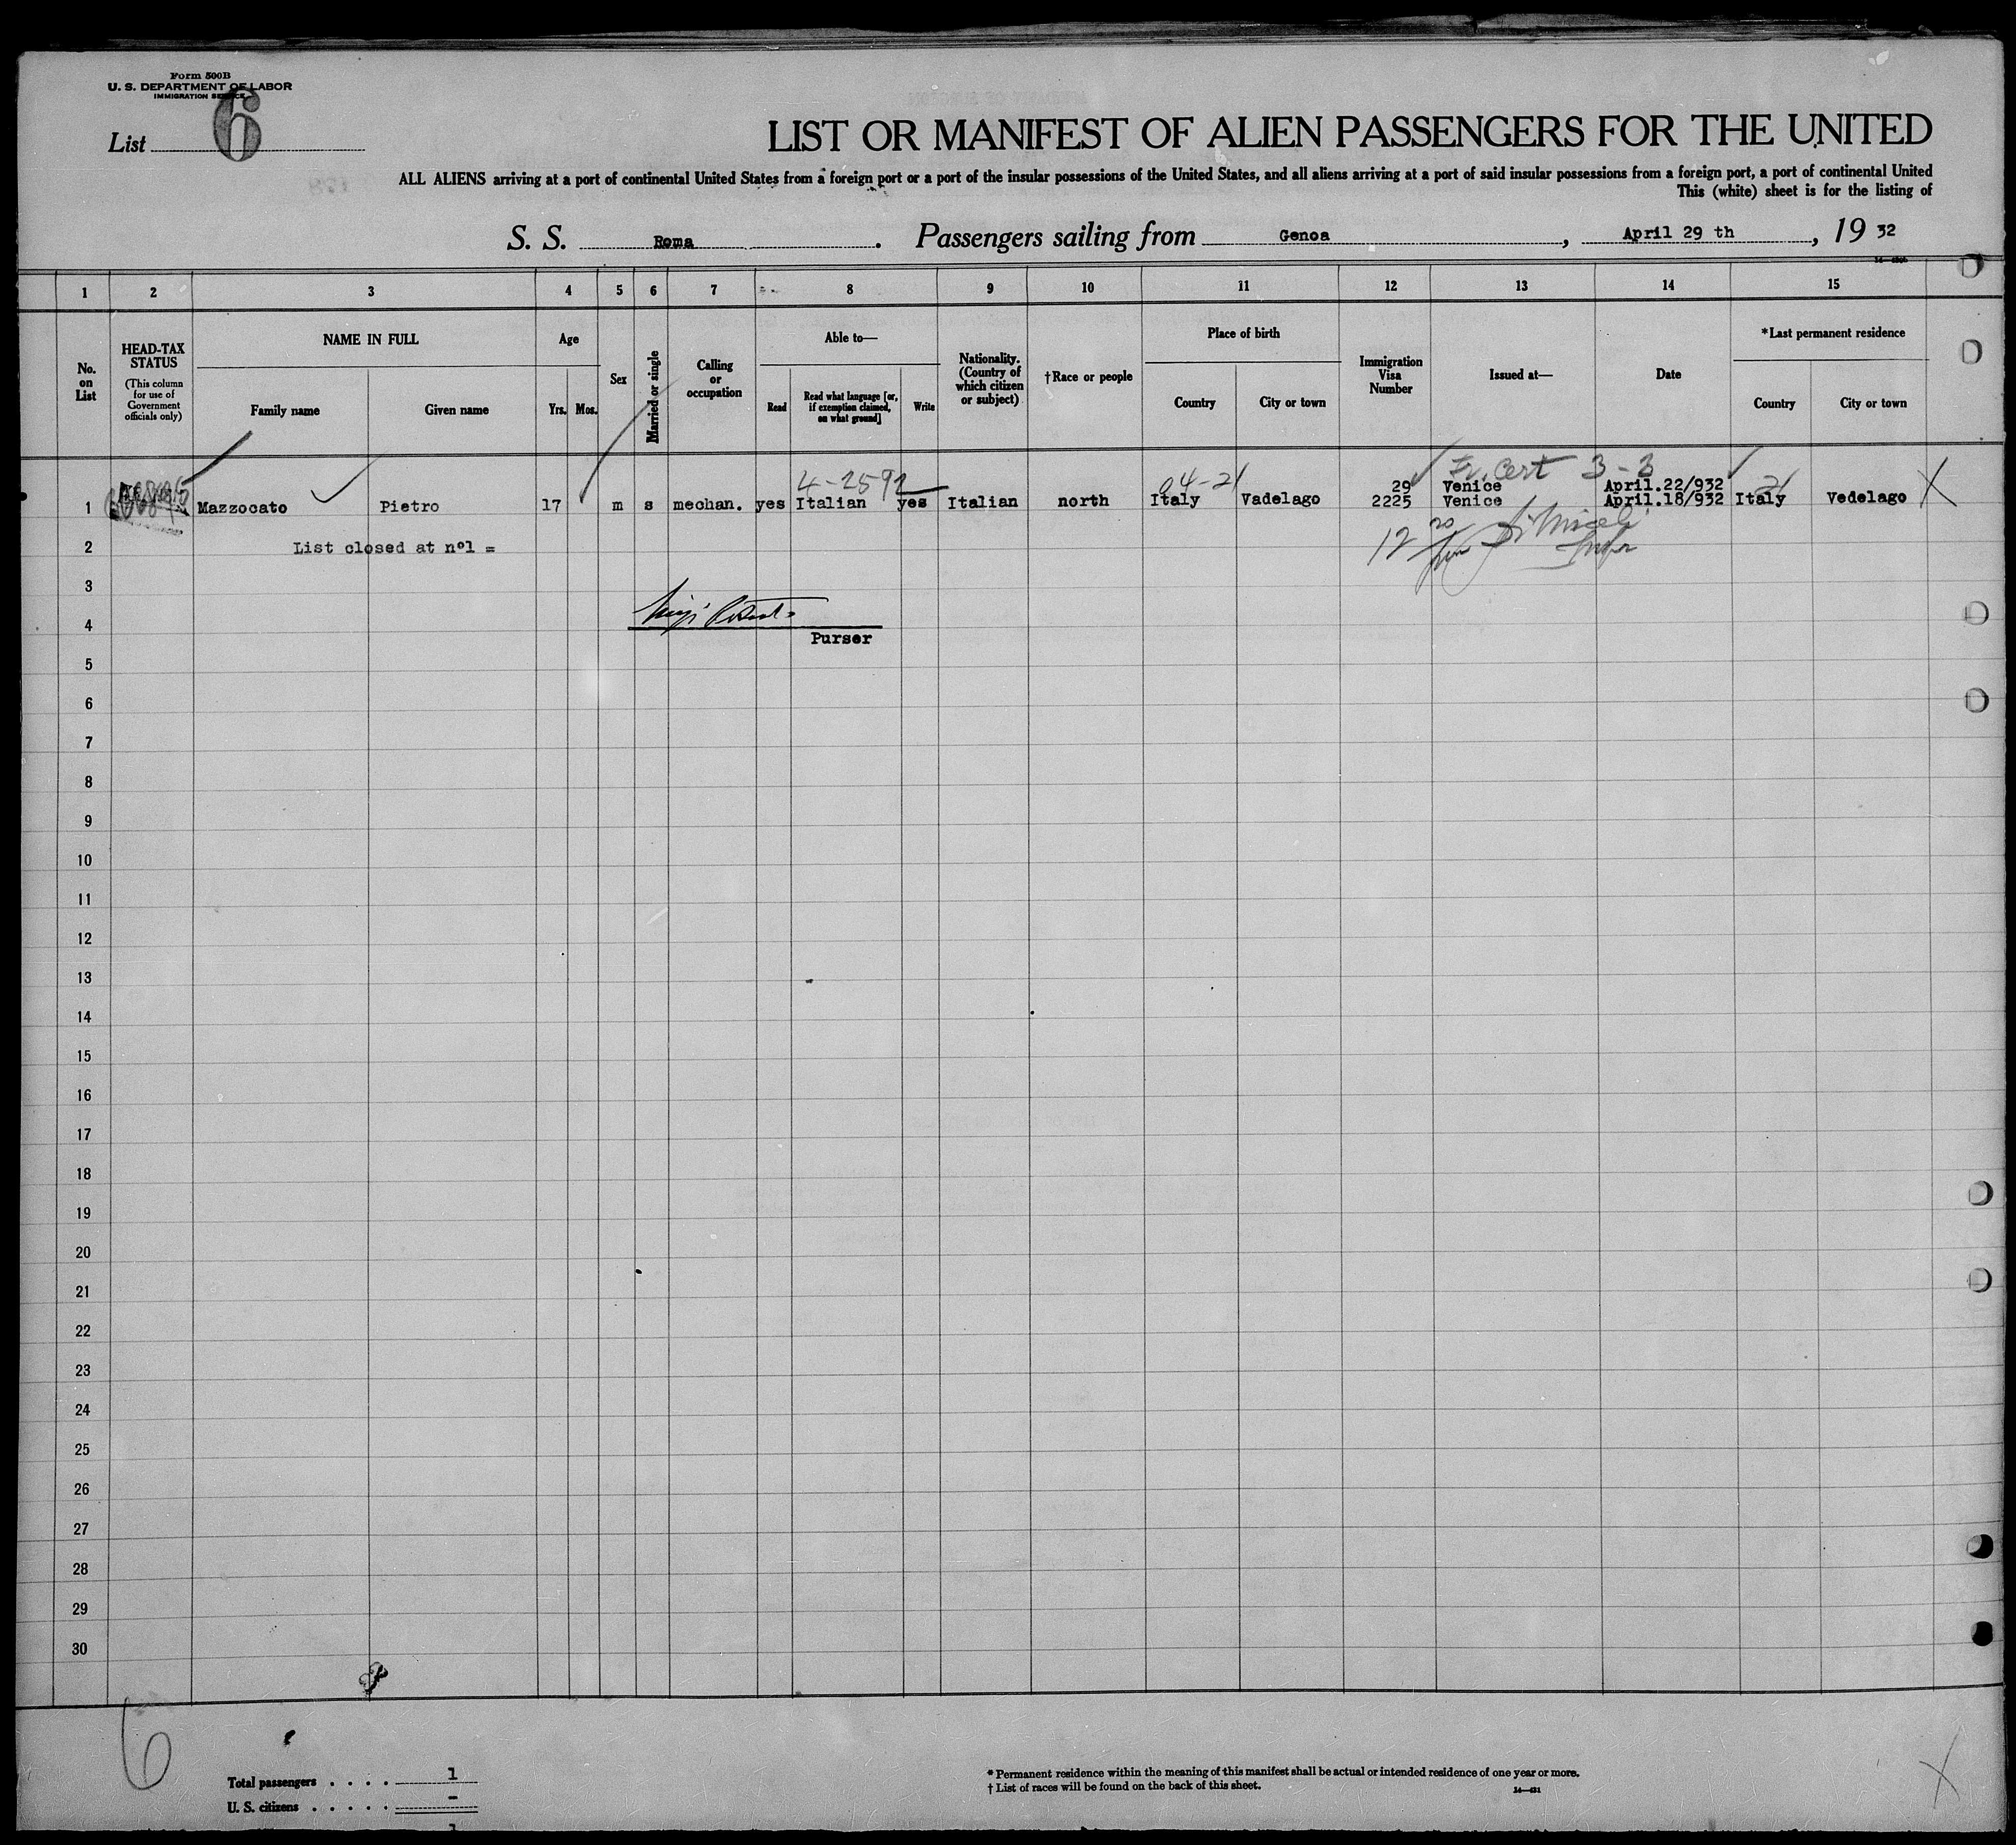 Form 500B
U. S. DEPARTMENT OF LABOR
IMMIGRATION SERVICE
List 6
LIST OR MANIFEST OF ALIEN PASSENGERS FOR THE UNITED
ALL ALIENS arriving at a port of continental United States from a foreign port or a port of the insular possessions of the United States, and all aliens arriving at a port of said insular possessions from a foreign port, a port of continental United
This (white) sheet is for the listing of
S. S. Roma. Passengers sailing from Genoa, April 29 th, 19 32
1 2 3 4 5 6 7 8 9 10 11 12 13 14 15
No. on List
HEAD-TAX STATUS
(This column for use of Government officials only)
NAME IN FULL
Family name
Given name
Age
Yrs. Mos.
Sex
Married or single
Calling or occupation
Able to—
Read
Read what language [or, if exemption claimed, on what ground]
Write
Nationality. (Country of which citizen or subject)
†Race or people
Place of birth
Country
City or town
Immigration Visa Number
Issued at—
Date
*Last permanent residence
Country
City or town
4-2592 04-21 Cert 3-3
29 Venice April.22/932
1 Mazzocato Pietro 17 m s mechan. yes Italian yes Italian north Italy Vadelago 2225 Venice April.18/932 Italy Vedelago X
2 List closed at nº1 =
12
3
4
Purser
5
6
7
8
9
10
11
12
13
14
15
16
17
18
19
20
21
22
23
24
25
26
27
28
29
30
6
Total passengers . . . . 1
U. S. citizens . . . . . -
1
* Permanent residence within the meaning of this manifest shall be actual or intended residence of one year or more.
† List of races will be found on the back of this sheet.
X